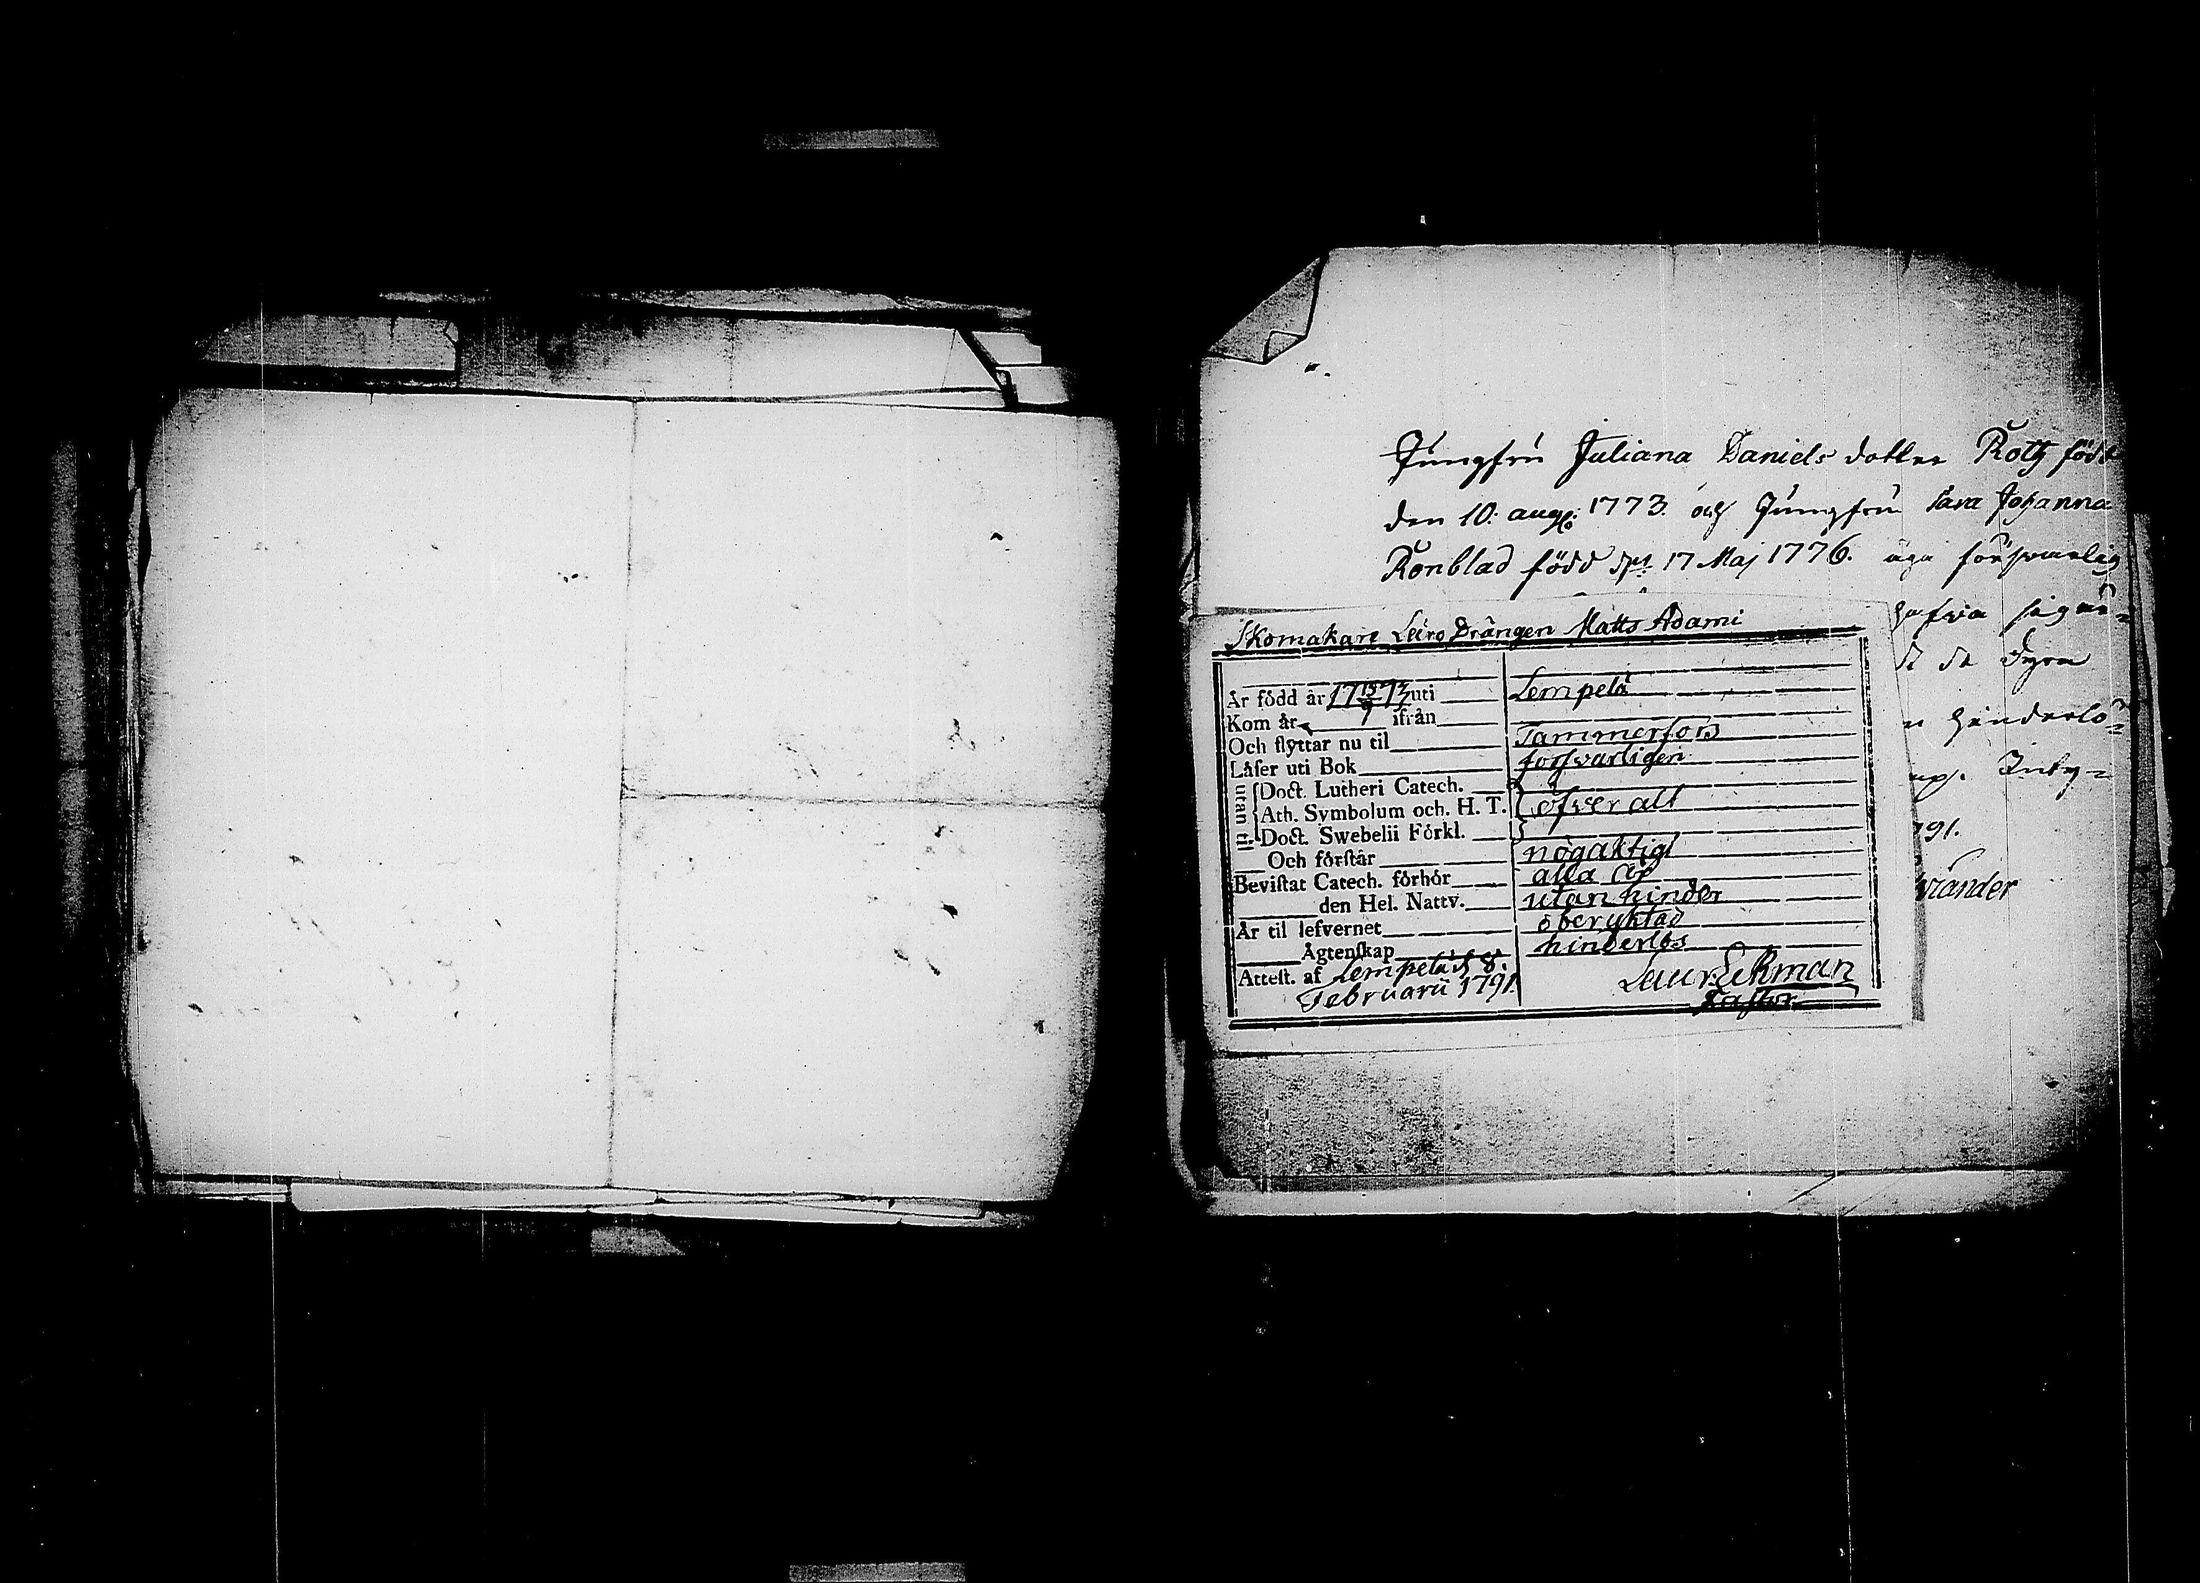 Jungfru Juliana Daniels dotter Roth född
den 10. aug: 1773. och Jungfru Sara Johanna
Ronblad född d. 17 Maj 1776. äga försvarlig
hafva
de dyra
hinderlö=
Inty=
791.
Skomakare Läro Drängen Matts Adami
År född år 17 15/9 73 uti Lempelä
Kom år ifrån
Och flyttar nu til Tammerfors
Låser uti Bok forsvarligen
utan til Doct. Lutheri Catech.
Ath. Symbolum och. H. T. öfver alt
Doct. Swebelii Förkl.
Och förstår nögaktigt
Bevistat Catech. förhör alla år
den Hel. Nattv. utan hinder
År til lefvernet oberyktad
Ägtenskap hinderlös
Attest. af Lempelä d. 8.
Februarii 1791.
Laur. Ekman
Pastor